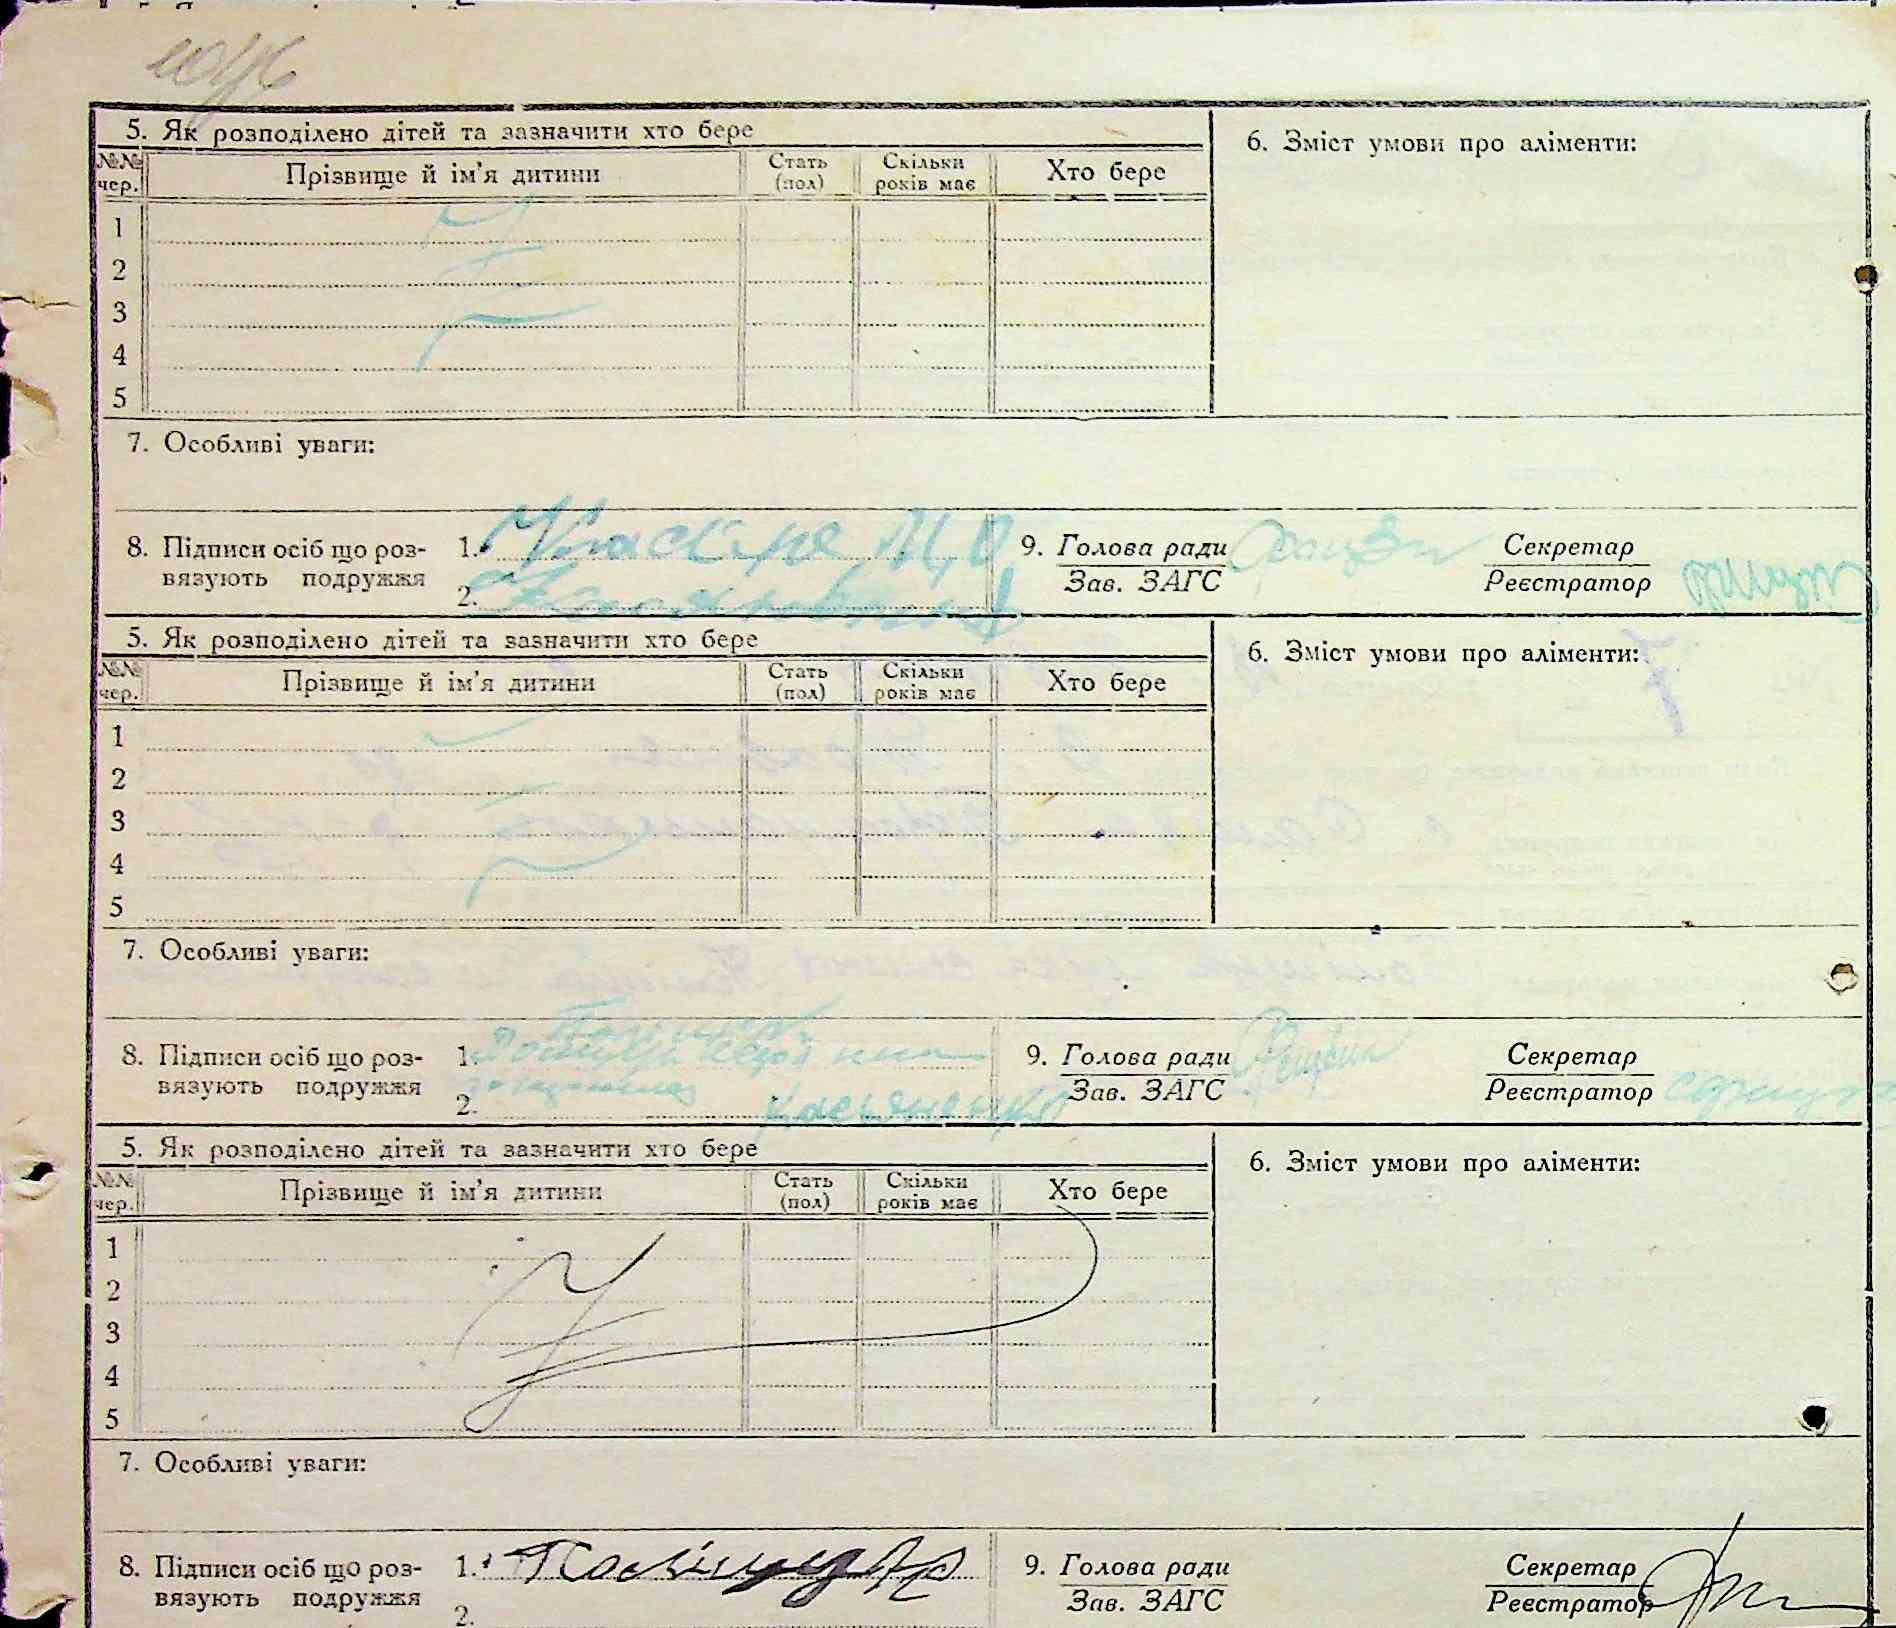 5. Як розподілено дітей та зазначити хто бере
6. Зміст умови про аліменти:
№№ чер. Прізвище й ім'я дитини Стать (пол) Скільки років має Хто бере
1
2
3
4
5
7. Особливі уваги:
8. Підписи осіб що роз-
вязують подружжя
1.
2.
9. Голова ради
Зав. ЗАГС
Секретар
Реєстратор
5. Як розподілено дітей та зазначити хто бере
6. Зміст умови про аліменти:
№№ чер. Прізвище й ім'я дитини Стать (пол) Скільки років має Хто бере
1
2
3
4
5
7. Особливі уваги:
8. Підписи осіб що роз-
вязують подружжя
1.
2. Касьяненко
9. Голова ради
Зав. ЗАГС
Секретар
Реєстратор
5. Як розподілено дітей та зазначити хто бере
6. Зміст умови про аліменти:
№№ чер. Прізвище й ім'я дитини Стать (пол) Скільки років має Хто бере
1
2
3
4
5
7. Особливі уваги:
8. Підписи осіб що роз-
вязують подружжя
1.
2.
9. Голова ради
Зав. ЗАГС
Секретар
Реєстратор